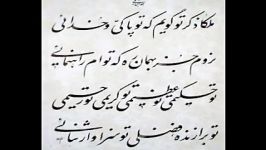 ملکا ذکر تو گویم که تو پاکی و خدائی
نروم جز بهمان ره که توام راهنمائی
تو حکیمی تو عظیمی تو کریمی تو رحیمی
تو برازنده فضلی تو سزاوار ثنائی